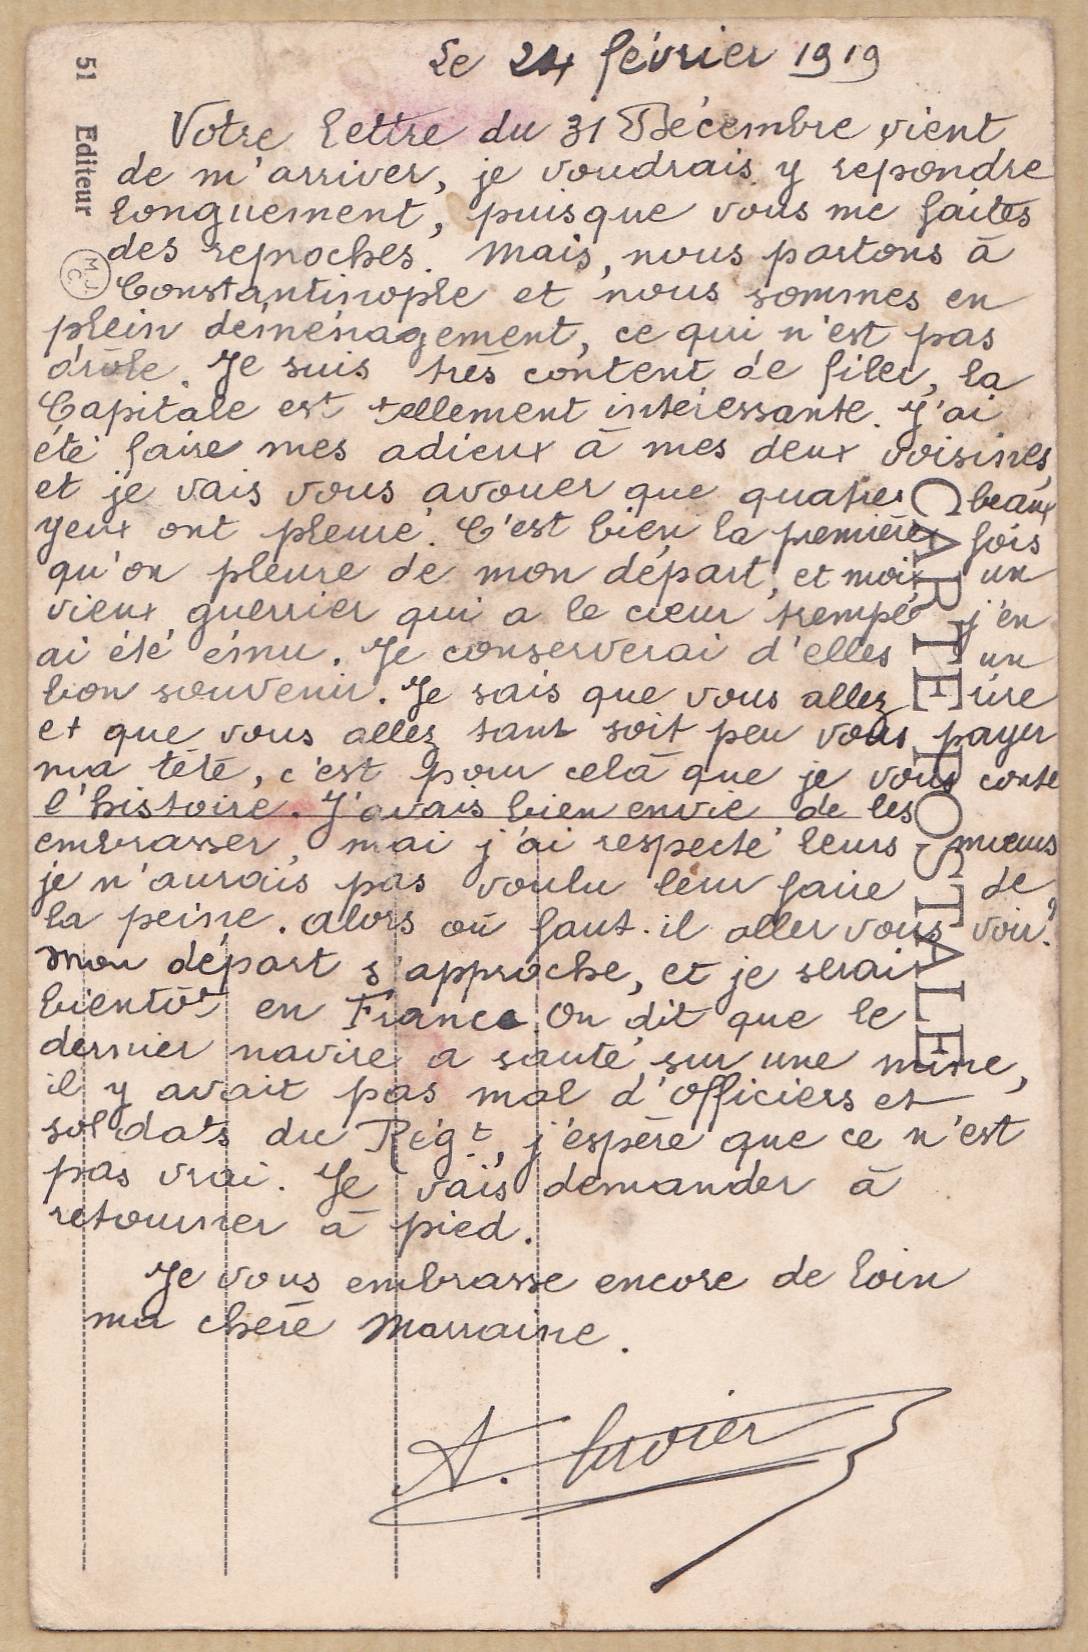 Le 24 février 1919
Votre lettre du 31 Décembre vient
de m'arriver, je voudrais y repondre
longuement, puisque vous me faites
des reproches. Mais, nous partons à
Constantinople et nous sommes en
plein déménagement, ce qui n'est pas
drôle. Je suis très content de filer, la
Capitale est tellement intéressante. J'ai
été faire mes adieux à mes deux voisines,
et je vais vous avouer que quatre beaux
yeux ont pleuré. C'est bien la première fois
qu'on pleure de mon départ, et moi un
vieux guerrier qui a le cœur trempé j'en
ai été ému. Je conserverai d'elles un
bon souvenir. Je sais que vous allez rire
et que vous allez tant soit peu vous payer
ma tête, c'est pour celà que je vous conte
l'histoire. J'avais bien envie de les
embrasser, mai j'ai respecté leurs mœurs
je n'aurais pas voulu leur faire de
la peine. Alors où faut-il aller vous voir?
Mon départ s'approche, et je serai
bientôt en France. On dit que le
dernier navire a sauté sur une mine,
il y avait pas mal d'officiers et
soldats du Régt, j'espère que ce n'est
pas vrai. Je vais demander à
retourner à pied.
Je vous embrasse encore de loin
ma chère Marraine.
A.
51 Editeur
M.J.C.
CARTE POSTALE